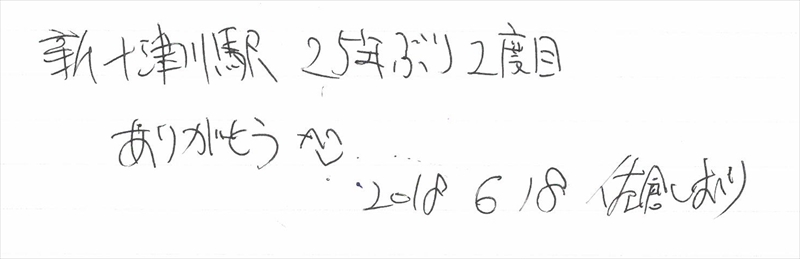 新十津川駅 25年ぶり2度目
ありがもう
2018 6 18 佐倉しおり